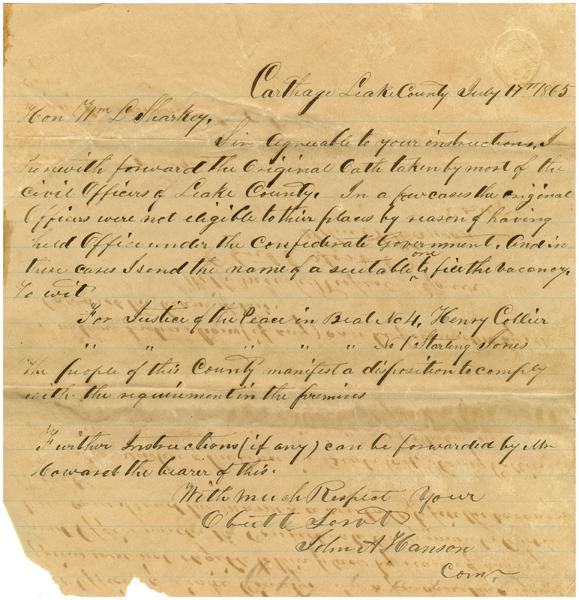 Carthage Leake County July 17th 1865
Hon Wm L Sharkey,
Sir Agreeable to your instructions, I
herewith forward the Original Oath taken by most of the
Civil Officers of Leake County. In a few cases the original
Officers were not eligible to their places by reason of having
held Office under the Confederate Government. And in
these cases I send the name of a suitable one to fill the vacancy.
To wit
For Justice of the Peace in Beat No 4, Henry Collier
" " " " " " No 1 Starling Jones
The people of this County manifest a disposition to comply
with the requirement in the premises
Further Instructions (if any) can be forwarded by Mr
Coward the bearer of this.
With much Respect Your
Obedt Servt
John A Hanson
Comr